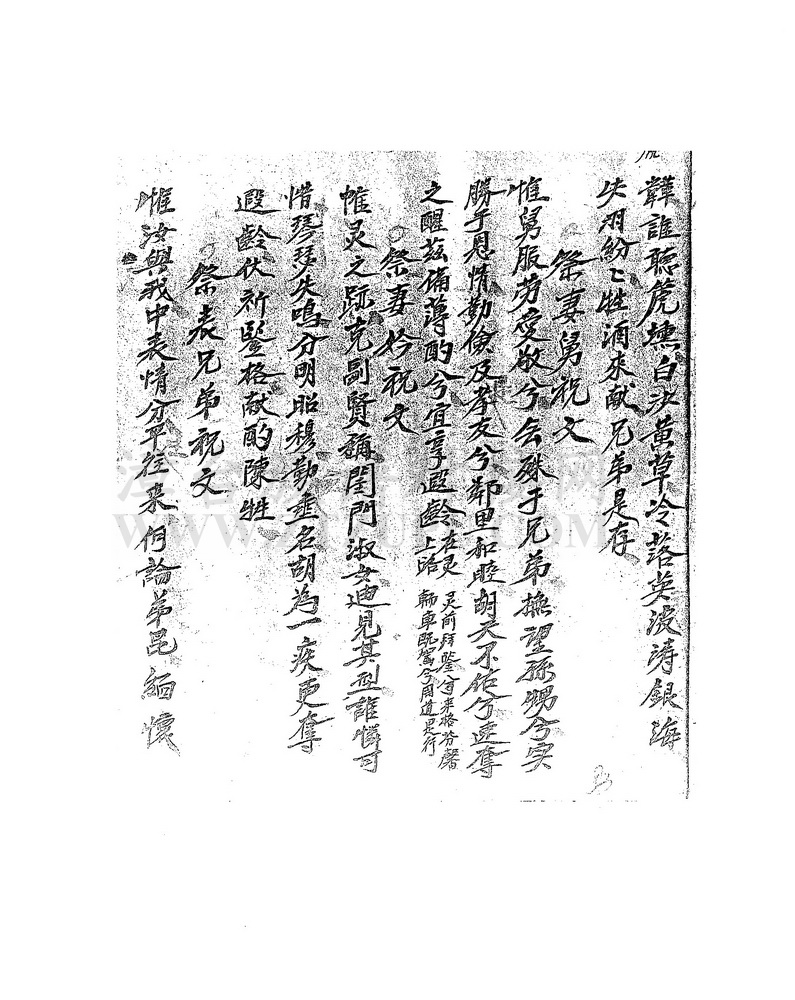 韡誰聽篪壎白決黃草冷落英波濤銀海
失羽紛々牲酒來献兄弟是存
祭妻舅祝文
惟舅服劳愛敬兮会殊于兄弟撫望孫甥兮实
勝于恩情勤儉及孝友兮鄰里和睦胡天不佑兮速奪
之醒茲備薄酌兮宜享遐齡 在灵 灵前拜鑒兮来格芬馨
上路 輀車既駕兮用道是行
祭妻妗祝文
惟灵之跡克嗣賢稱閨門淑女迪見其型誰憐可
惜琴瑟失鳴分明昭穆勤垂名胡為一疾更奪
遐齡伏祈鑒格献酌陳牲
祭表兄弟祝文
惟汝與我中表情分平往来何論弟昆緬懷